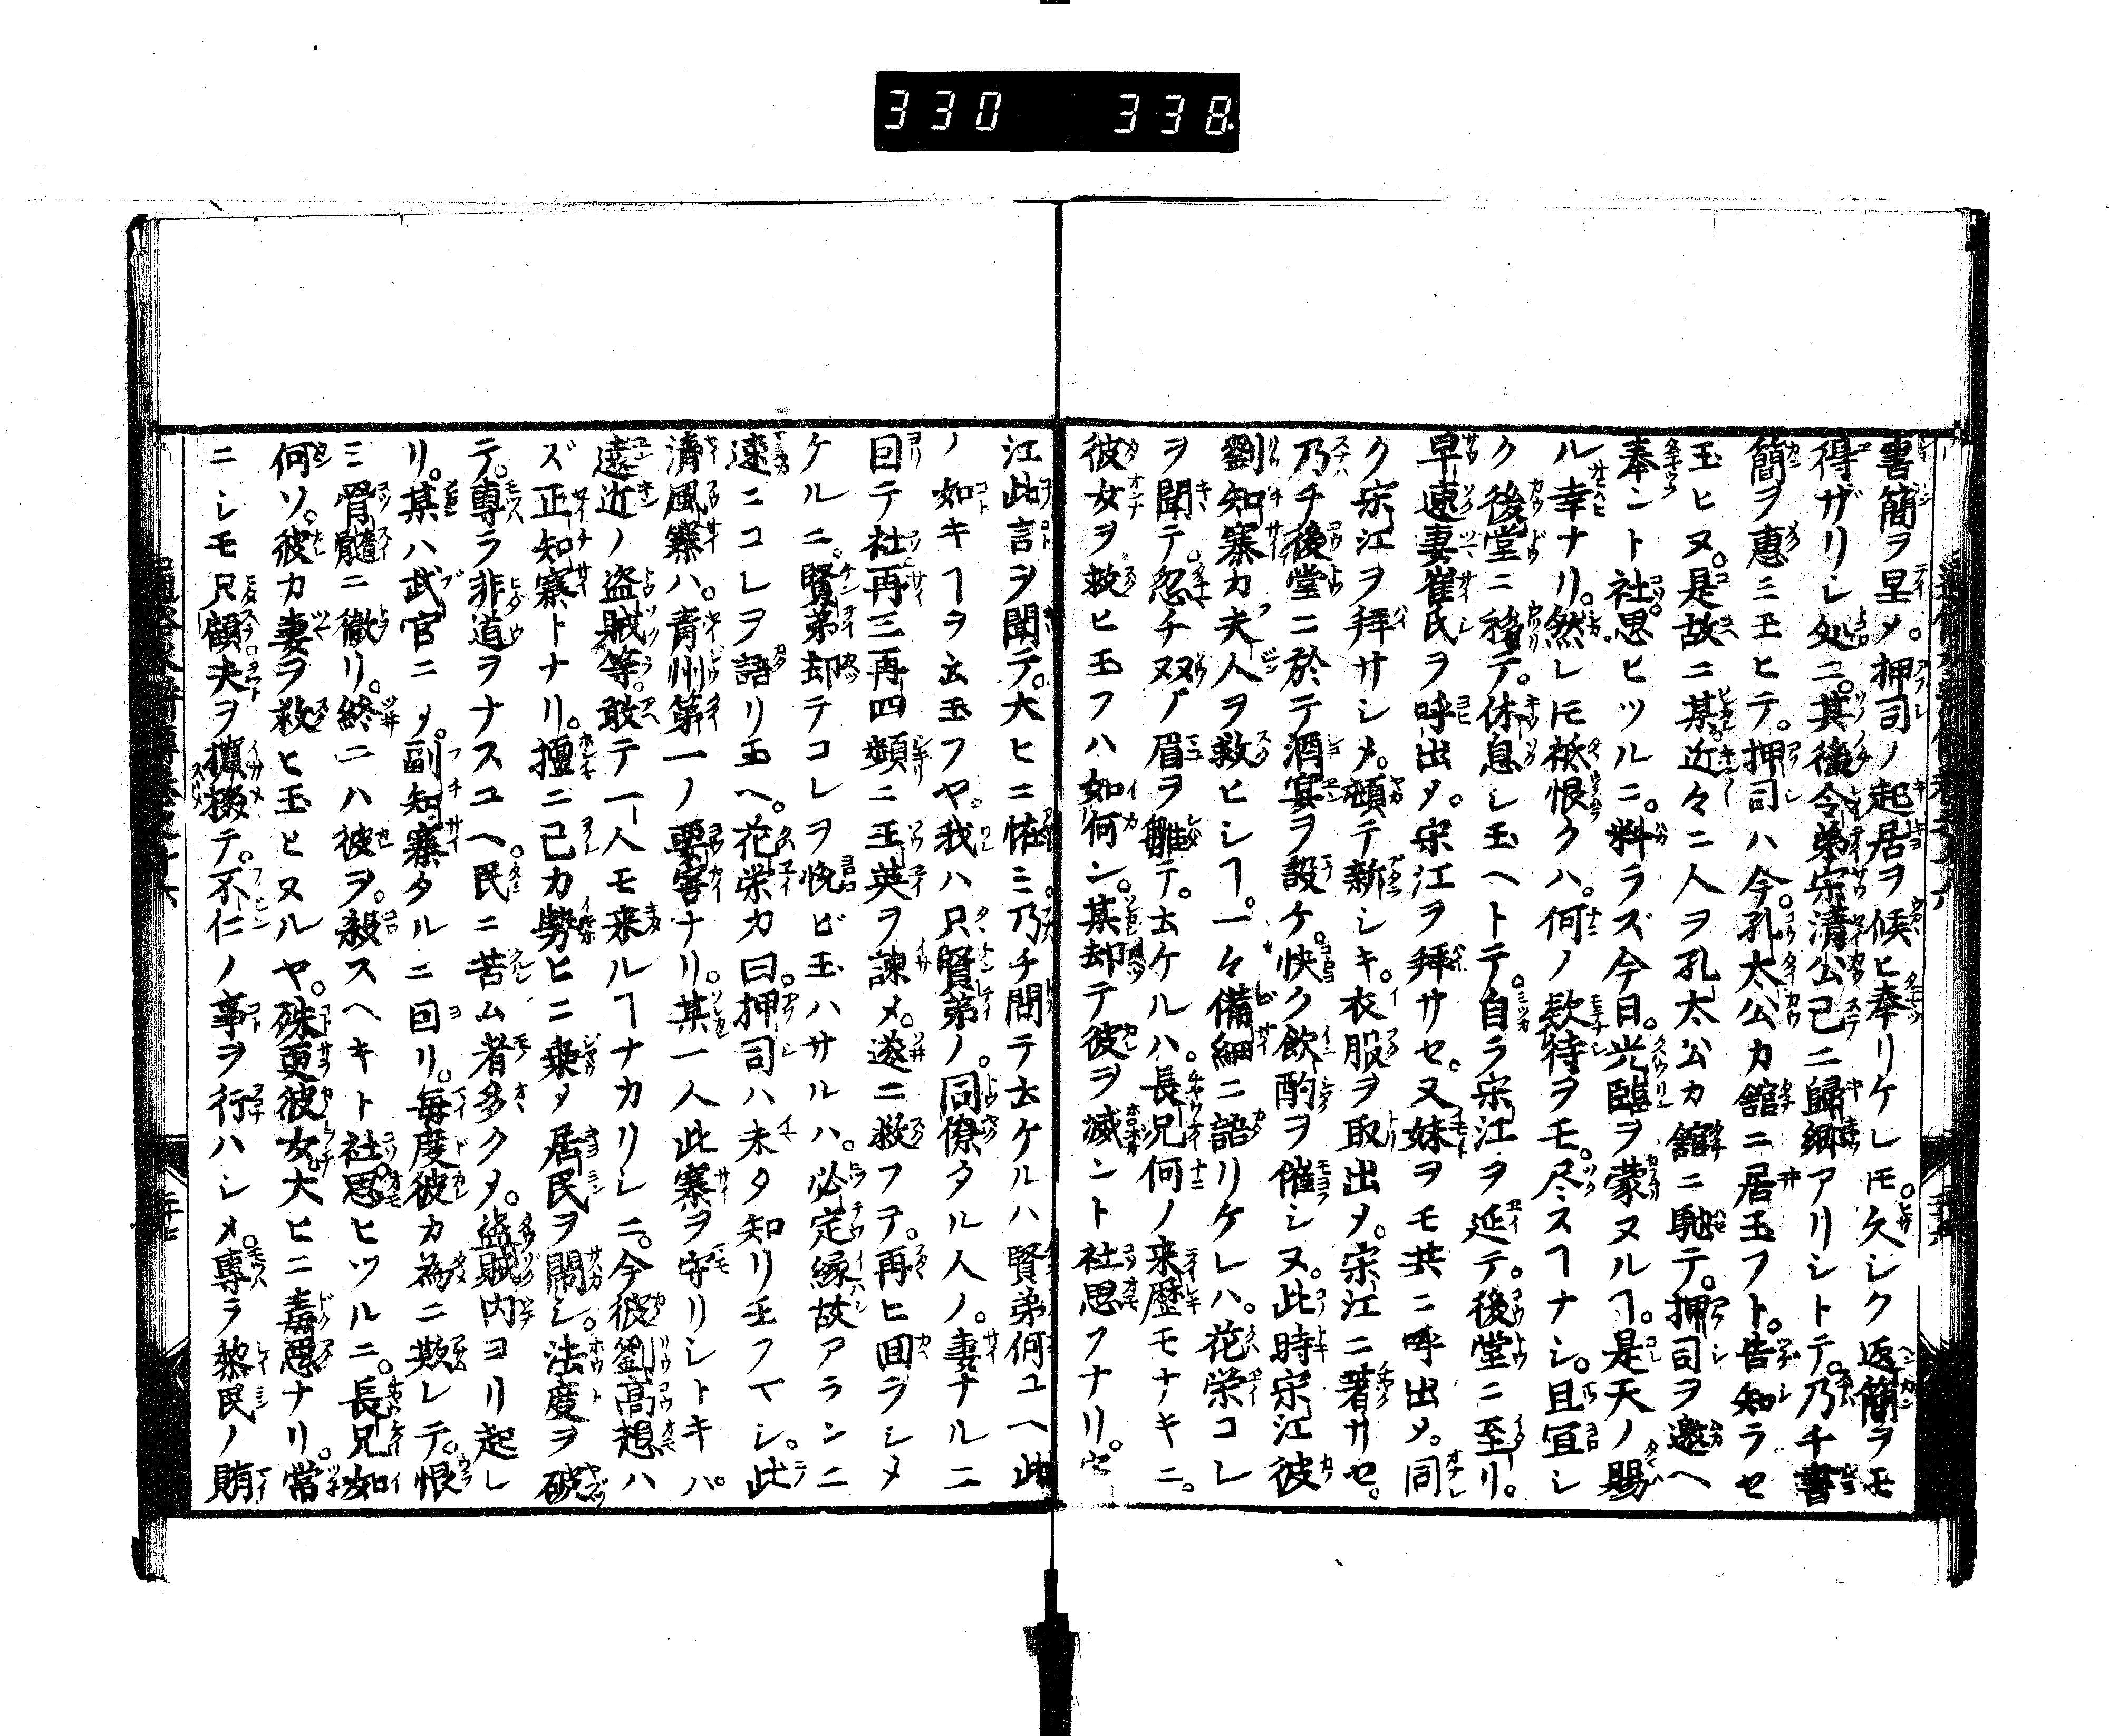 330 338
書簡ヲ呈メ。押司ノ起居ヲ候ヒ奉リケレ𪜈。久シク返簡ヲモ
得ザリシ処ニ。其後令弟宋清公已ニ歸郷アリシトテ。乃チ書
簡ヲ惠ミ玉ヒテ。押司ハ今。孔太公カ舘ニ居玉フト。告知ラセ
玉ヒヌ。是故ニ某。近々ニ人ヲ孔太公カ舘ニ馳テ。押司ヲ邀ヘ
奉ント社思ヒツルニ。料ラズ今日。光臨ヲ蒙ヌルヿ。是天ノ賜
ル幸ナリ。然レ𪜈祇恨クハ。何ノ欵待ヲモ。尽スヿナシ。且宜シ
ク後堂ニ移テ。休息シ玉ヘトテ。自ラ宋江ヲ延テ。後堂ニ至リ。
早速妻崔氏ヲ呼出メ。宋江ヲ拜サセ。又妹ヲモ共ニ呼出メ。同
ク宋江ヲ拜サシメ。頓テ新シキ。衣服ヲ取出メ。宋江ニ著サセ。
乃チ後堂ニ於テ酒宴ヲ設ケ。快ク飲酌ヲ催シヌ。此時宋江彼
劉知寨カ夫人ヲ救ヒシヿ。一々備細ニ語リケレハ。花栄コレ
ヲ聞テ。忽チ双ノ眉ヲ皺テ。云ケルハ。長兄何ノ来歴モナキニ。
彼女ヲ救ヒ玉フハ如何ン。某却テ彼ヲ滅ント社思フナリ。宋
江此言ヲ聞テ。大ヒニ怪ミ。乃チ問テ云ケルハ賢弟何ユヘ此
ノ如キヿヲ云玉フヤ。我ハ只賢弟ノ。同僚タル人ノ。妻ナルニ
因テ社。再三再四頻ニ王英ヲ諫メ。遂ニ救フテ。再ヒ回ラシメ
ケルニ。賢弟却テコレヲ悦ビ玉ハサルハ。必定縁故アランニ
速ニコレヲ語リ玉ヘ。花栄カ曰。押司ハ未タ知リ玉フマシ。此
清風寨ハ。青州第一ノ要害ナリ。某一人此寨ヲ守リシトキハ゜
遠近ノ盗賊等。敢テ一人モ来ルヿナカリシニ。今彼劉高想ハ
ズ正知寨トナリ。擅ニ己カ勢ヒニ乗メ居民ヲ閙シ。法度ヲ破
テ。專ラ非道ヲナスユヘ。民ニ苦ム者多クメ。盗賊内ヨリ起レ
リ。某ハ武官ニメ。副知寨タルニ因リ。毎度彼カ為ニ欺レテ。恨
ミ骨髓ニ徹リ。終ニハ彼ヲ。殺スヘキト社思ヒツルニ。長兄如
何ソ。彼カ妻ヲ救ヒ玉ヒヌルヤ。殊更彼女大ヒニ毒悪ナリ。常
ニシモ只顧夫ヲ攛掇テ。不仁ノ事ヲ行ハシメ。專ラ黎民ノ賄